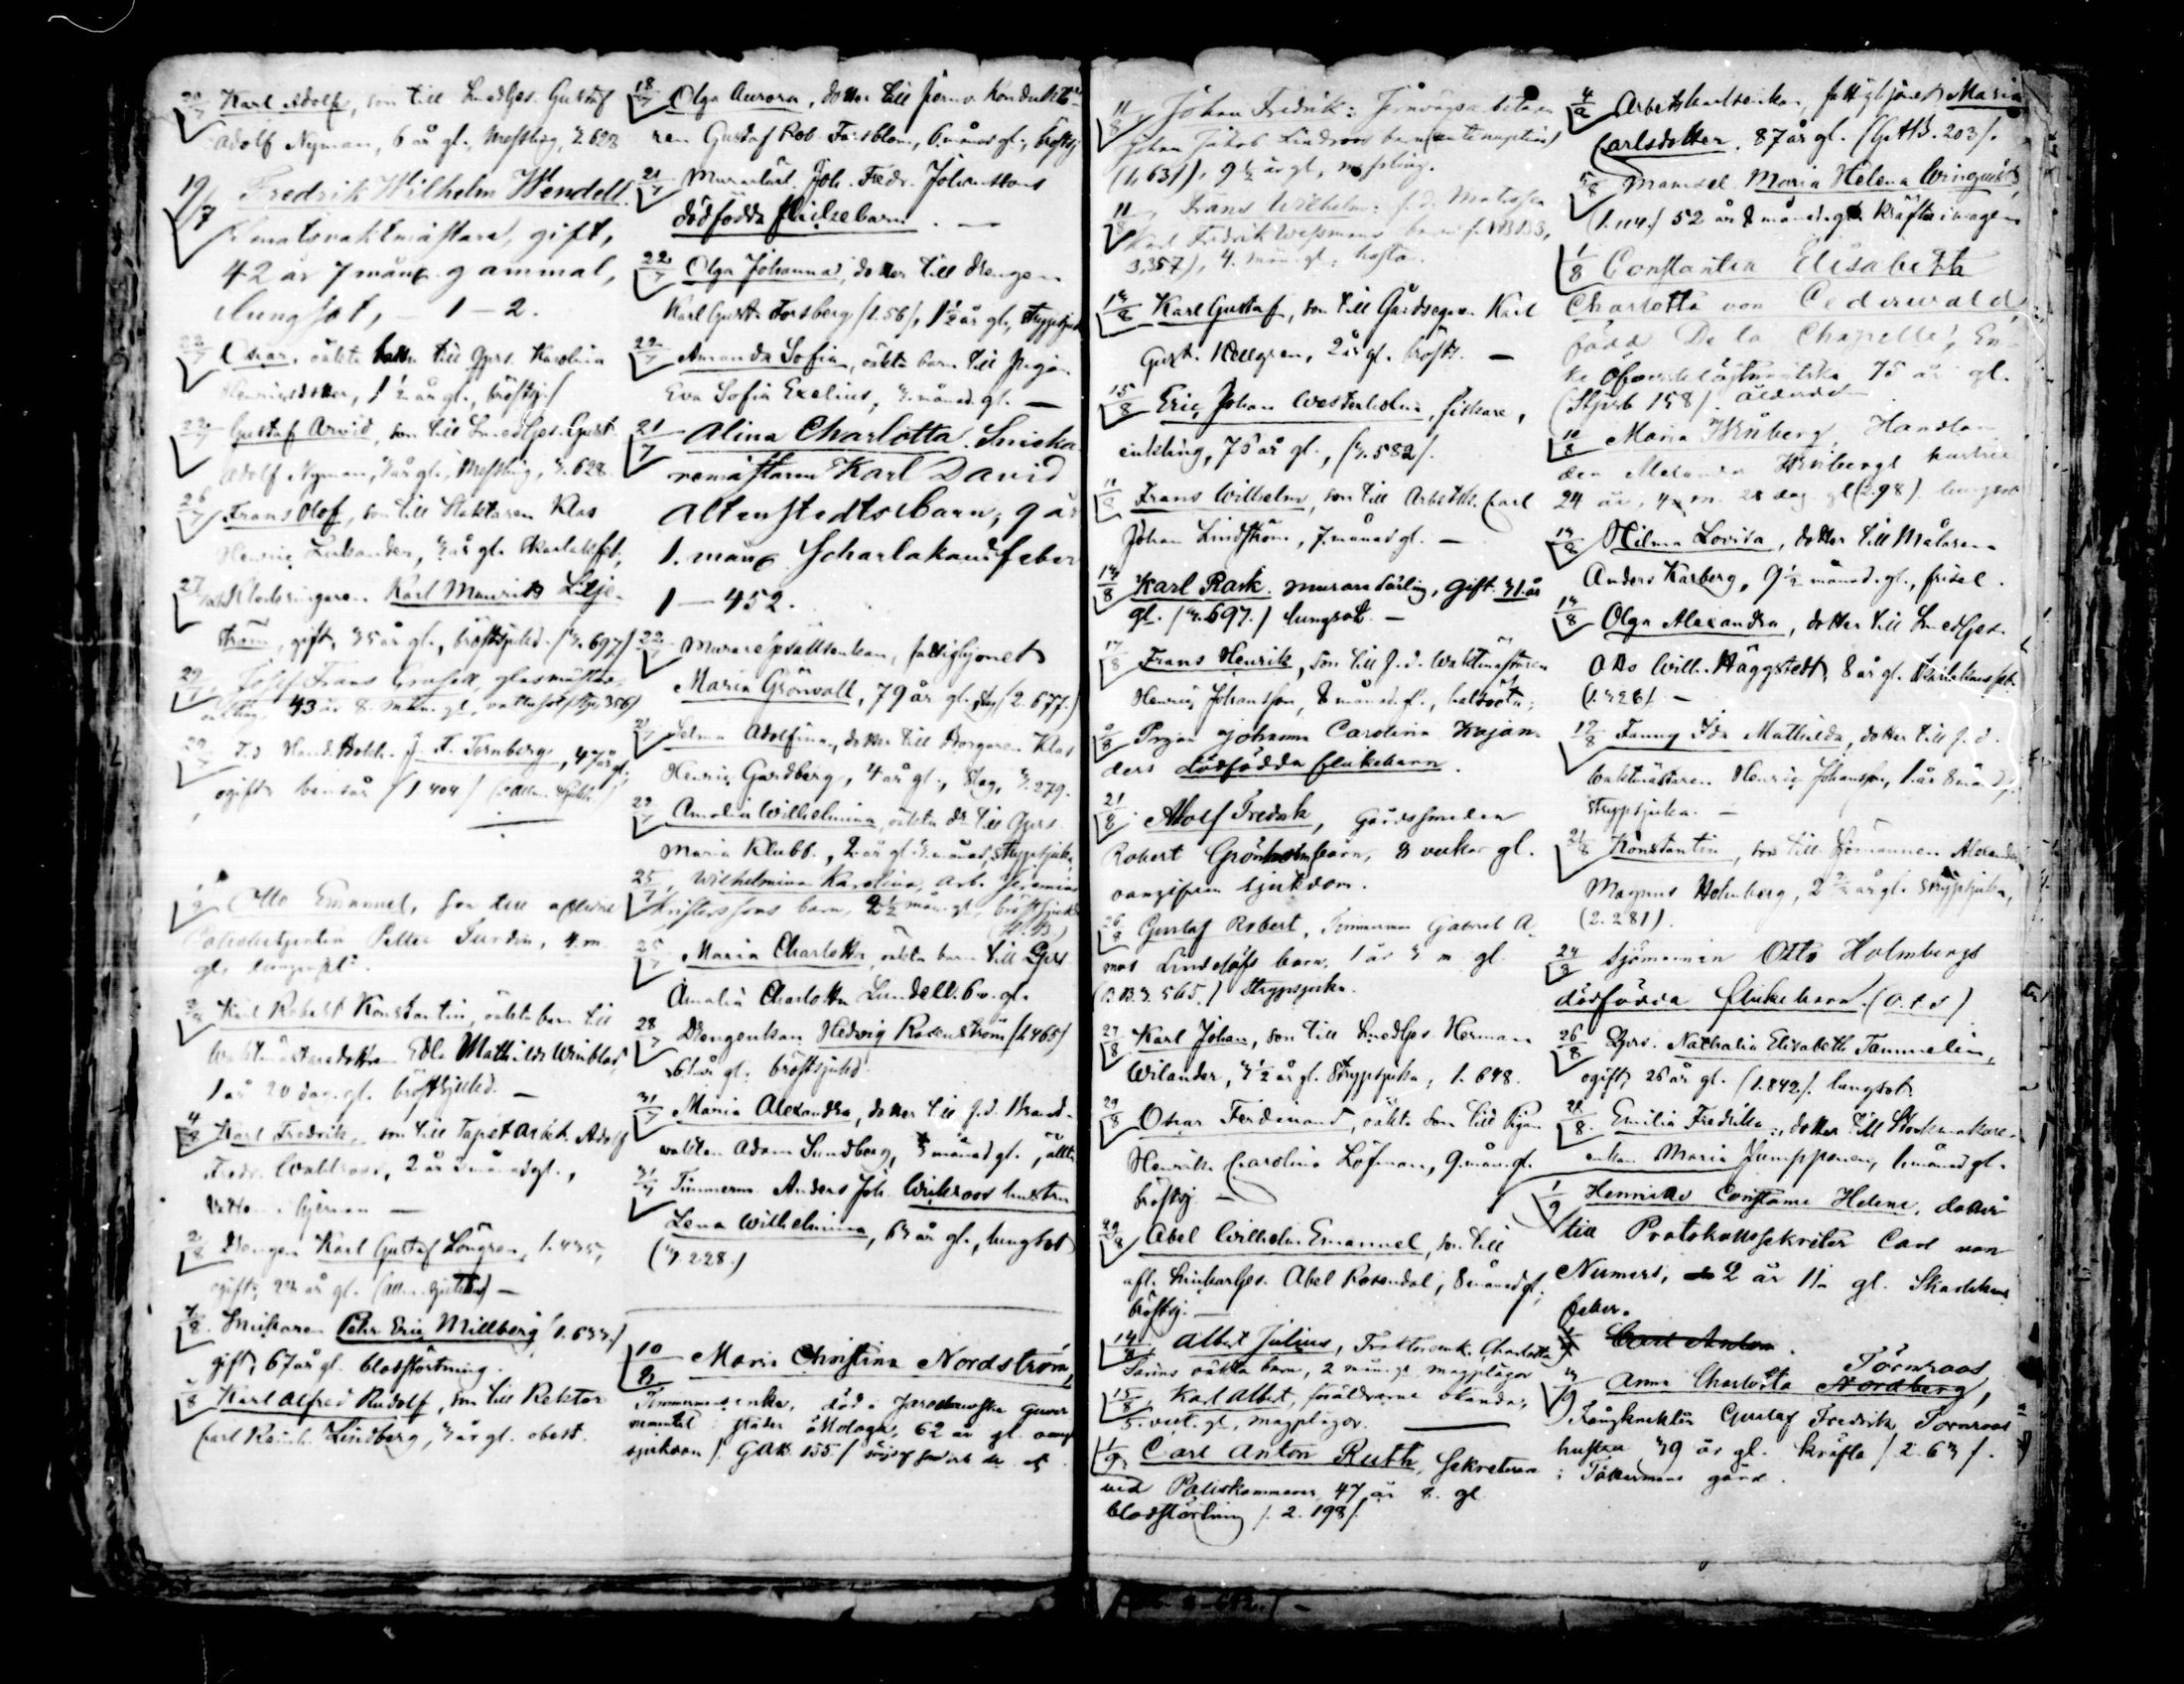 20/7 Karl Adolf, son till SmedGes. Gustaf
Adolf Nyman, 6 år gl., Messling, 3.628
19/7 Fredrik Wilhelm Wendell.
Senatsvaktmästare, gift,
42 år 7 mån. gammal,
Lungsot, – 1 – 2.
22/7 Oscar, oäkta till Qprs. Karolina
Henricsdotter, 1½ år gl., bröstsj.
22/7 Gustaf Arvid, son till SmedGes. Gust.
Adolf Nyman, 3 år gl., Messling, 3.628
26/7 Frans Olof, son till Slaktaren Klas
Henric, 3 år gl. skarlakfeb.
27/7 Karl Maurits Lilje-
ström, gift, 35 år gl., bröstsjukd. (3.697)
29/7 Josef Frans, glasmästar
43 år 8 mån. gl., vattusot 356)
29/7 F.d. Handl.Bokh. J. F. Tornberg, 47 år gl.,
ogift, bensår (1.404)
1/8 Otto Emanuel, son till
Petter Sundin, 4 m.
gl.
Karl Robert Konstantin, oäkta barn till
Waktmästaredottren Edla Mathilda Winblad,
1 år 20 dag. gl. bröstsjukd. –
4/8 Karl Fredrik, son till Tapetarbet. Adolf
Fredr. Wahlroos, 2 år 3 månad gl.,
Vatten i hjernan –
2/8 Drengen Karl Gustaf Löngren, 1.435,
ogift, 23 år gl. –
7/8 Snickaren Pehr Eric Millberg (1.633)
gift, 67 år gl. blodstörtning.
8 Karl Alfred Rudolf, son till Rektor
Carl Reinh. Lindberg, 3 år gl. obest.
18/7 Olga Aurora, dotter till Jernv. Kondukto-
ren Gustaf Rob. Forsblom, 6 månad gl., bröstsj.
21/7 Murarlärl. Joh. Fredr. Johanssons
dödfödda flickebarn. –
22/7 Olga Johanna, dotter till drengen
Karl Gust. Forsberg (1.56), 1½ år gl., strypsjuk
22/7 Amanda Sofia, oäkta barn till Pigan
Eva Sofia Exelius, 3 månad. gl. –
21/7 Alina Charlotta. Snicka-
remästaren Karl David
Altenstedts barn, 9 år
1. mån. Scharlakansfeber
1 – 452.
22/7 Muraregesällsenkan, fattighjonet
Maria Grönvall, 79 år gl. (2.677.)
21/7 Selma Adolfina, dotter till Borgaren Klas
Henric Gardberg, 4 år gl., Slag, 3.279.
22/7 Amalia Wilhelmina, oäkta dr till Qprs.
Maria Klubb., 2 år gl. 3 månad, strypsjuka
25/7 Wilhelmina Karolina, Arb. Jeremias
Kristerssons barn, 2½ mån. gl., bröstsjukd
25/7 Maria Charlotta, oäkta barn till Qprs
Amalia Charlotta Lundell. 6 v. gl.
28/7 Drengenkan Hedvig Rosenström (1.465)
61 år gl. bröstsjukd.
31/7 Maria Alexandra, dotter till f.d. Brand-
vakten Adam Sundberg, 5 månad gl.,
31/7 Timmerm. Anders Joh. Wikroos hustru
Lena Wilhelmina, 63 år gl., lungsot
(3.228.)
10/ Maria Christina Nordström,
Timmermansenka, död i Jaroslawska guver
nementet staden Mologa, 62 år gl.
sjukdom (GAB. 155.)
11/8 Johan Fredrik: Jernvägsarbetaren
Johan Jakob Lindroos barn (ante nuptias)
(1,631), 9½ år gl., messling.
11/8 Frans Wilhelm: f.d. Matrosen
Karl Fredrik Wessmans barn
3,357), 4. mån. gl. hosta.
14/8 Karl Gustaf, son till Gårdsegaren Karl
Gust. Hellgren, 2 år gl. bröstsj. –
15/8 Eric Johan Westerholm, fiskare,
enkling, 75 år gl., (3.582).
11/8 Frans Wilhelm, son till Arbetsk. Carl
Johan Lindström, 7 månad gl. –
14/8 Karl Rask. Murarelärling, gift 31 år
gl. (3.697.) lungsot. –
17/8 Frans Henrik, son till f.d. Waktmästaren
Henric Johansson, 8 månad. gl., halsröta;
8 Pigan Johanna Carolina Kajan-
ders dödfödda flickebarn.
21/8 Adolf Fredrik, Gårdssmeden
Robert Grönholms barn, 8 veckor gl.
oangifven sjukdom.
26/8 Gustaf Robert, Timmerman Gabriel A-
mos Lindelöfs barn, 1 år 3 m gl.
(B.B. 3. 565.) Strypsjuka.
27/8 Karl Johan, son till SmedGes. Herman
Wilander, 3½ år gl. Strypsjuka, 1. 648.
29/8 Oscar Ferdinand, oäkta son till Pigan
Henrika Carolina Löfman, 9. mån. gl.
bröstsj. –
29/8 Abel Wilhelm Emanuel, son till
afl. SnickarGes. Abel Rosendal, 8 månad gl.,
bröstsj. –
14/8 Albert Julius, Charlotta
oäkta barn, 2 mån. gl. magplågor
15/8 Karl Albert, föräldrarne okända,
5. veck. gl., magplågor.
1/9 Carl Anton Ruth, Sekreteraren
vid Poliskammaren 47 år 8. gl
blodstörtning (2. 198).
4/8 Arbetskarlsenkan, fattighjonet Maria
Carlsdotter. 87 år gl. (G.A.B. 203).
5/8 Mamsell. Maria Helena Winquist,
(1.114.) 52 år 8 månad. gl. Kräfta i magen
1/8 Constantia Elisabeth
Charlotta von Cederwald
född De la Chapelle, En-
ka Öfverstelöjtnantska 75 år gl.
(Stjrb 158). ålderdom
10/8 Maria Winberg, Handlan-
den Alexander Winbergs hustru
24 år, 4 m. 28 dag. gl (2.98). lungsot
14/8 Hilma Lovisa, dotter till Målaren
Anders Karberg, 9½ månad. gl., frisel.
14/8 Olga Alexandra, dotter till SmedGes.
Otto Wilh. Häggstedt, 8 år gl. Skarlakansfeb.
(1.326). –
19/8 Fanny Ida Mathilda, dotter till f.d.
Waktmästaren Henric Johansson, 1. år 8 månad
strypsjuka. –
21/8 Konstantin, son till Sjömannen Alexander
Magnus Holmberg, 2 år gl. strypsjuka,
(2.281).
24/8 Sjömannen Otto Holmbergs
dödfödda flickebarn. (O.t.S)
26/8 Qprs. Nathalia Elisabeth Tammelin,
ogift, 26 år gl. (1.842.) lungsot.
28/8. Emilia Fredrika:, dotter till Stockmakare-
enkan Maria Pumppanen, 1. månad gl.
1/9 Henriette Constance Helene, dotter
till Protokollssekreter Carl von
Numers, 2 år 11 gl. Skarlakans
feber.
Carl Anton.
Törnroos
Anna Charlotta Nordberg,
Gustaf Fredrik Törnroos
hustru 39 år gl. kräfta (2.63).
i gård.